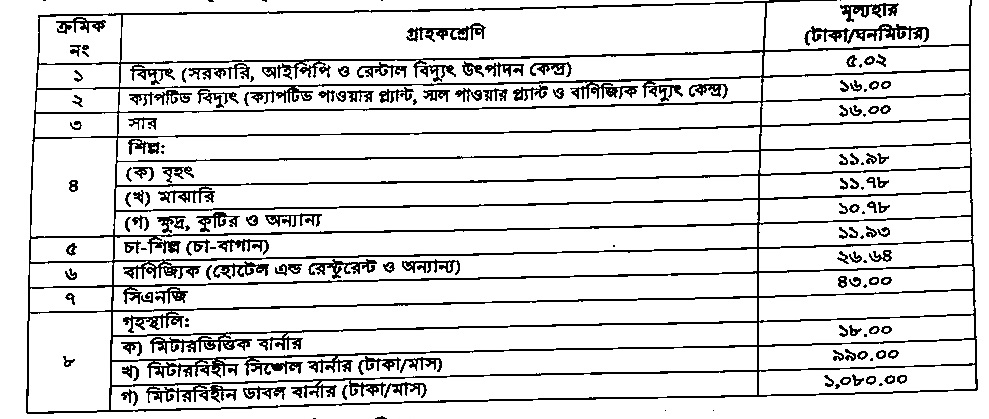 ক্রমিক নং | গ্রাহকশ্রেণি | মূল্যহার (টাকা/ঘনমিটার)
১ | বিদ্যুৎ (সরকারি, আইপিপি ও রেন্টাল বিদ্যুৎ উৎপাদন কেন্দ্র) | ৫.০২
২ | ক্যাপটিভ বিদ্যুৎ (ক্যাপটিভ পাওয়ার প্ল্যান্ট, স্মল পাওয়ার প্ল্যান্ট ও বাণিজ্যিক বিদ্যুৎ কেন্দ্র) | ১৬.০০
৩ | সার | ১৬.০০
৪ | শিল্প:
(ক) বৃহৎ | ১১.৯৮
(খ) মাঝারি | ১১.৭৮
(গ) ক্ষুদ্র, কুটির ও অন্যান্য | ১০.৭৮
৫ | চা-শিল্প (চা-বাগান) | ১১.৯৩
৬ | বাণিজ্যিক (হোটেল এন্ড রেস্টুরেন্ট ও অন্যান্য) | ২৬.৬৪
৭ | সিএনজি | ৪৩.০০
৮ | গৃহস্থালি:
ক) মিটারভিত্তিক বার্নার | ১৮.০০
খ) মিটারবিহীন সিঙ্গেল বার্নার (টাকা/মাস) | ৯৯০.০০
গ) মিটারবিহীন ডাবল বার্নার (টাকা/মাস) | ১,০৮০.০০